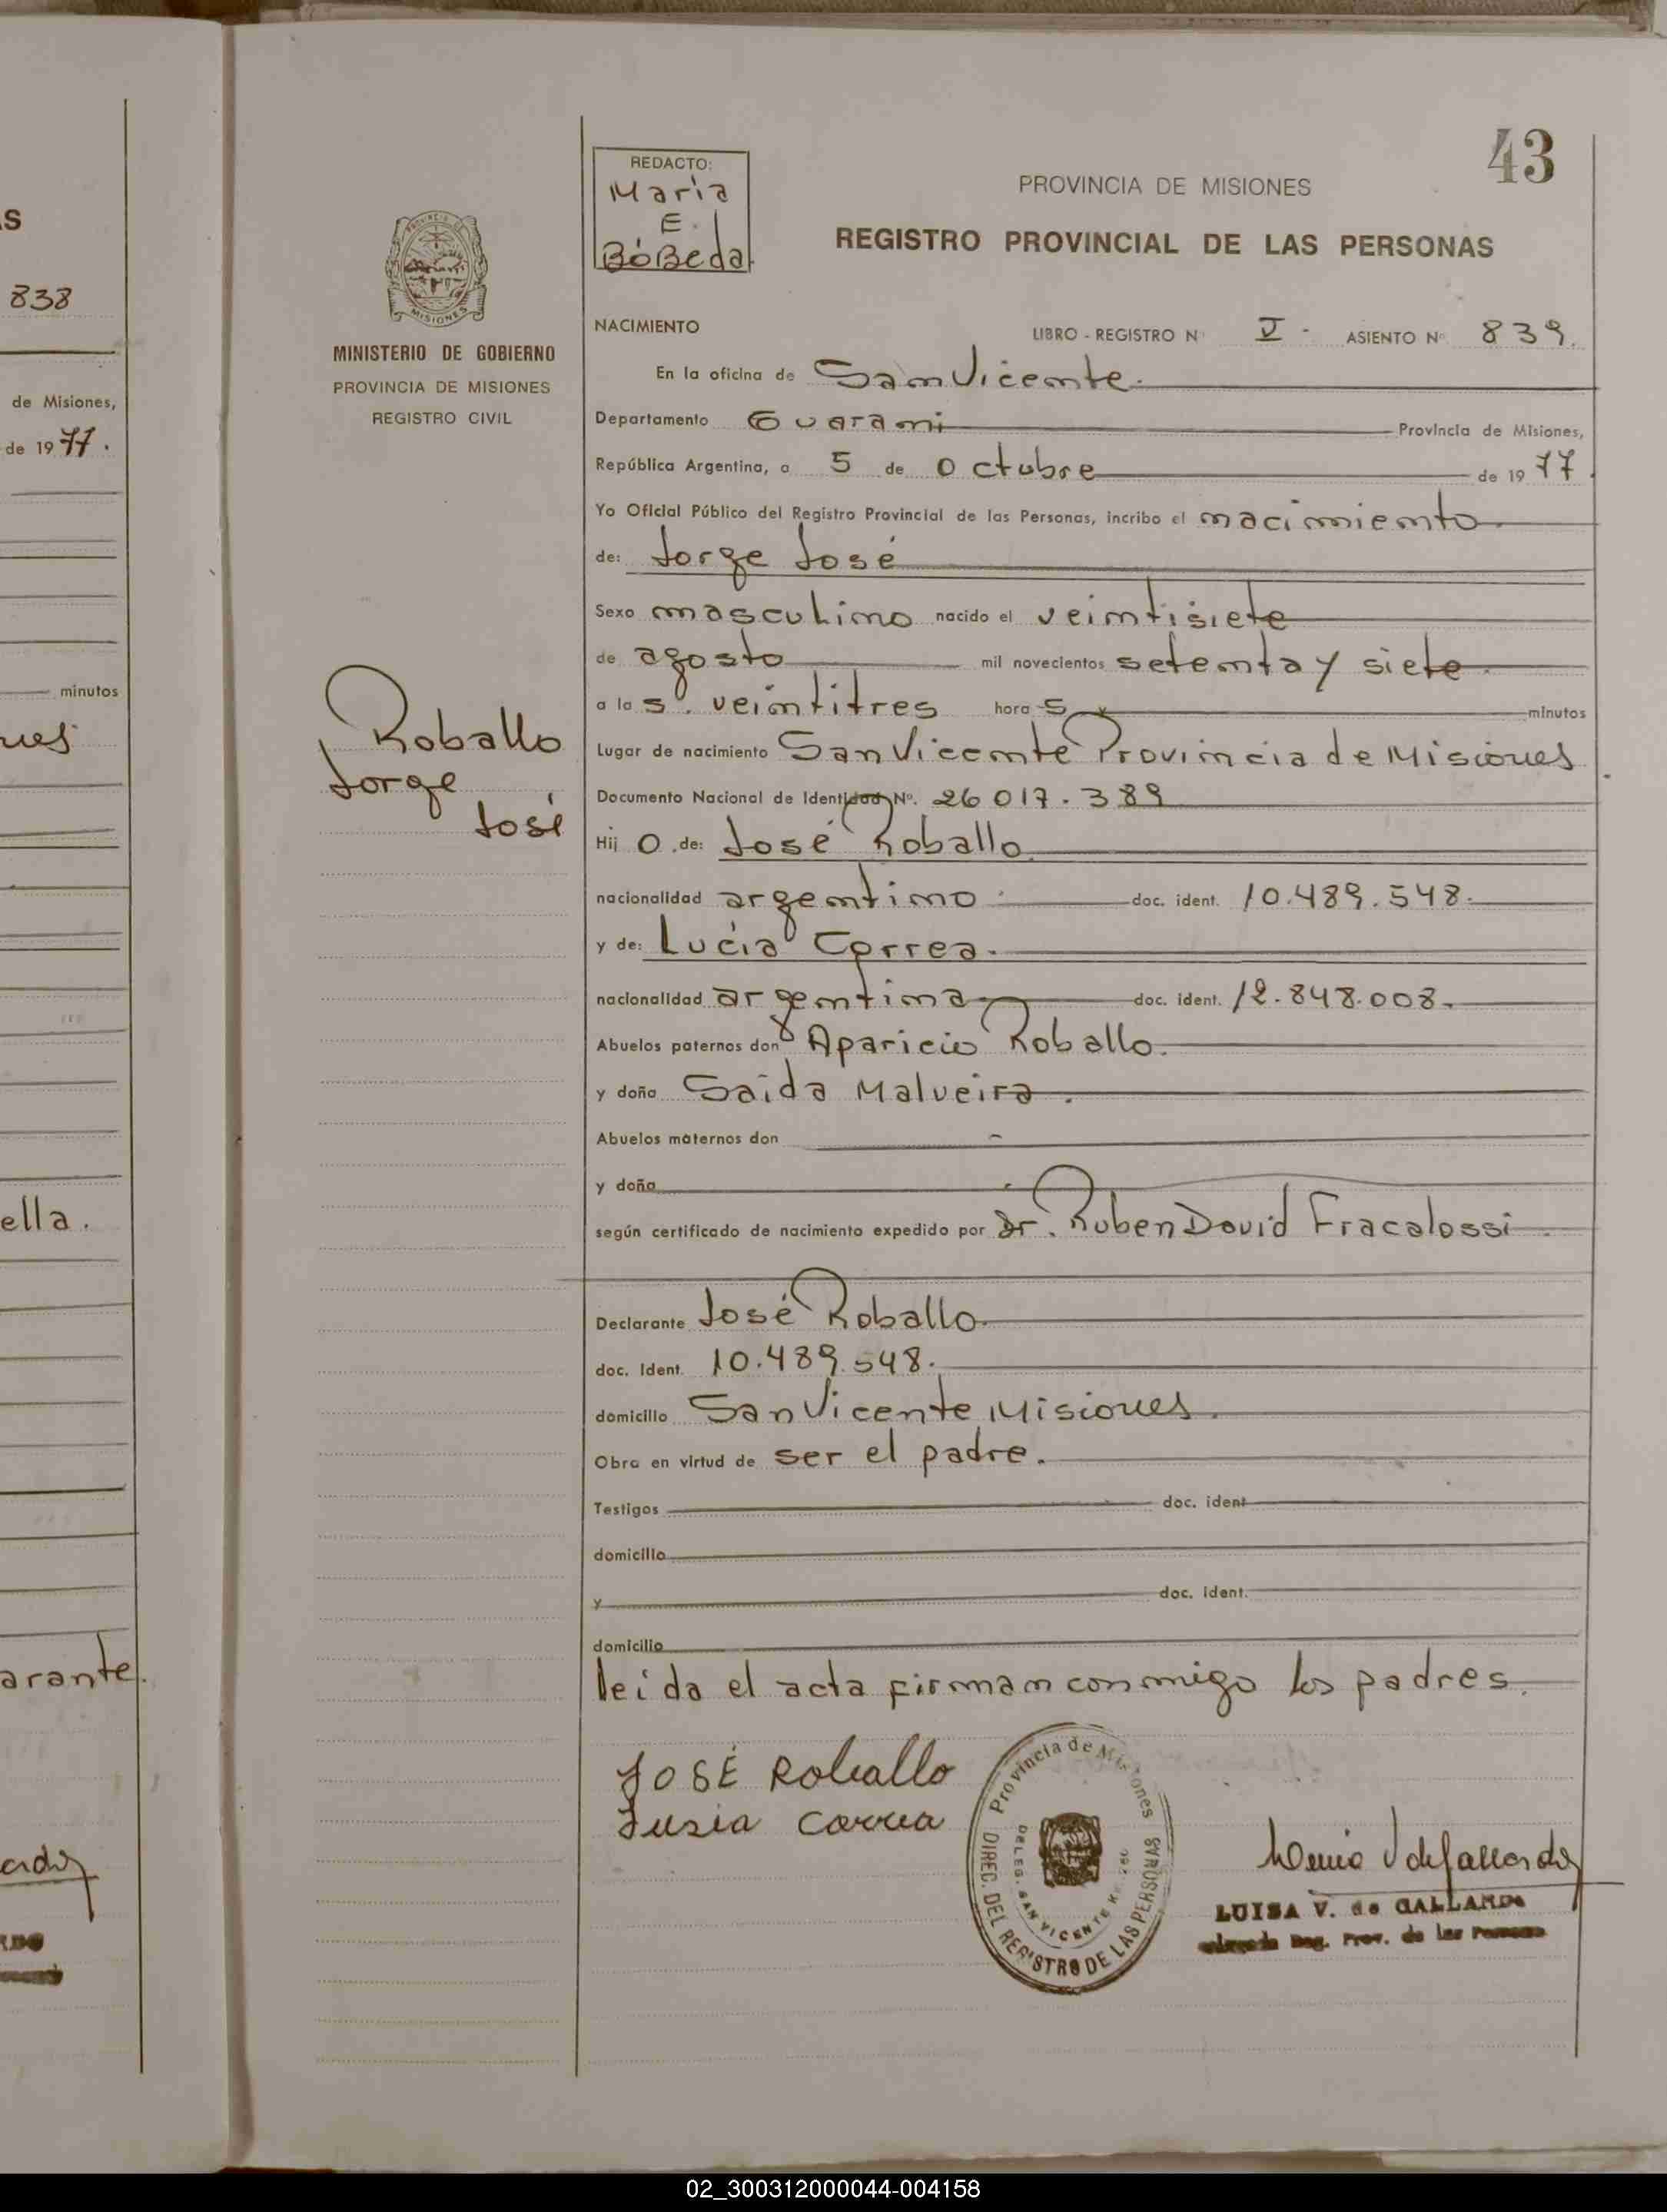 S
838
de Misiones,
de 1977.
minutos
ues
ella.
arante.
43
REDACTO:
Maria
E.
BóBeda
PROVINCIA DE MISIONES
REGISTRO PROVINCIAL DE LAS PERSONAS
MISIONES
MINISTERIO DE GOBIERNO
PROVINCIA DE MISIONES
REGISTRO CIVIL
Roballo
Jorge
José
NACIMIENTO LIBRO - REGISTRO Nº V - ASIENTO Nº 839.
En la oficina de San Vicente.
Departamento Guarani Provincia de Misiones,
República Argentina, a 5 de Octubre de 1977
Yo Oficial Público del Registro Provincial de las Personas, incribo el nacimiento
de: Jorge José
Sexo masculino nacido el veintisiete
de agosto mil novecientos setenta y siete
a las. veintitres horas y minutos
Lugar de nacimiento San Vicente Provincia de Misiones
Documento Nacional de Identidad Nº. 26 017.389
Hijo de: José Roballo
nacionalidad argentino doc. ident. 10.489.548.
y de: Lucia Correa.
nacionalidad argentina doc. ident. 12.848.008.
Abuelos paternos don Aparicio Roballo.
y doña Saida Malveira.
Abuelos maternos don -
y doña
según certificado de nacimiento expedido por Dr. Ruben David Fracalossi
Declarante José Roballo
doc. Ident. 10.489.548.
domicilio San Vicente Misiones.
Obra en virtud de ser el padre.
Testigos doc. ident
domicilio
y doc. ident.
domicilio
leida el acta firman conmigo los padres.
JOSÉ Roballo
Lusia Correa
Provincia de Misiones
DIREC. DEL REGISTRO DE LAS PERSONAS
DELEG. SAN VICENTE
LUISA V. de GALLARDO
Reg. Prov. de las Personas
02_300312000044-004158